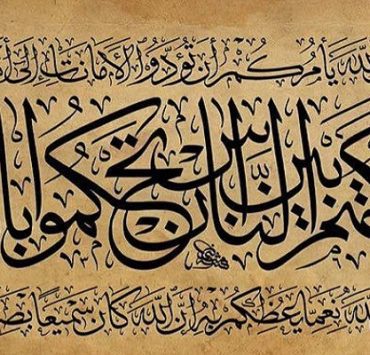 الله يأمركم أن تؤدوا الأمانات إلى أ
كمتم بين الناس أن تحكموا با
الله نعما يعظكم به إن الله كان سميعا بص